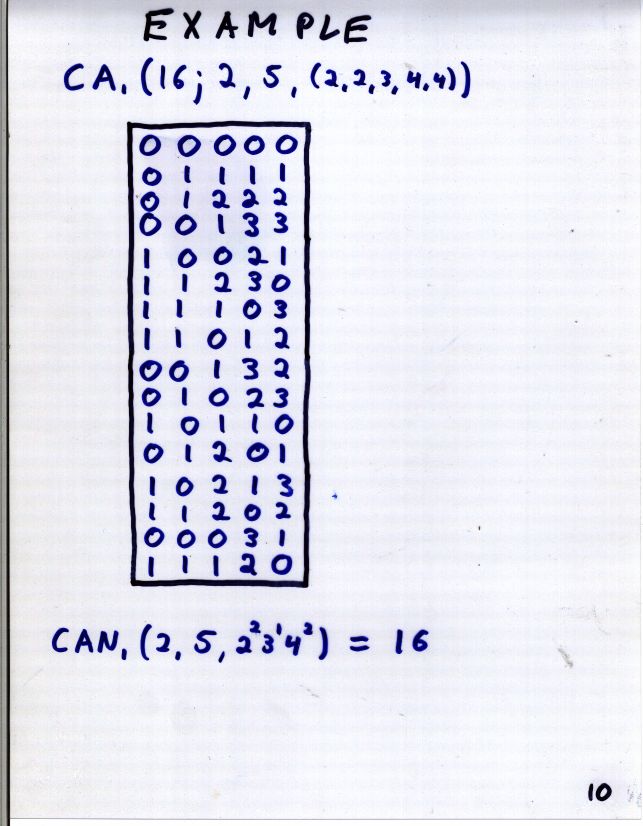 EXAMPLE
CA, (16; 2, 5, (2,2,3,4,4))
0 0 0 0 0
0 1 1 1 1
0 1 2 2 2
0 0 1 3 3
1 0 0 2 1
1 1 2 3 0
1 1 1 0 3
1 1 0 1 2
0 0 1 3 2
0 1 0 2 3
1 0 1 1 0
0 1 2 0 1
1 0 2 1 3
1 1 2 0 2
0 0 0 3 1
1 1 1 2 0
CAN, (2, 5, 2²3¹4²) = 16
10